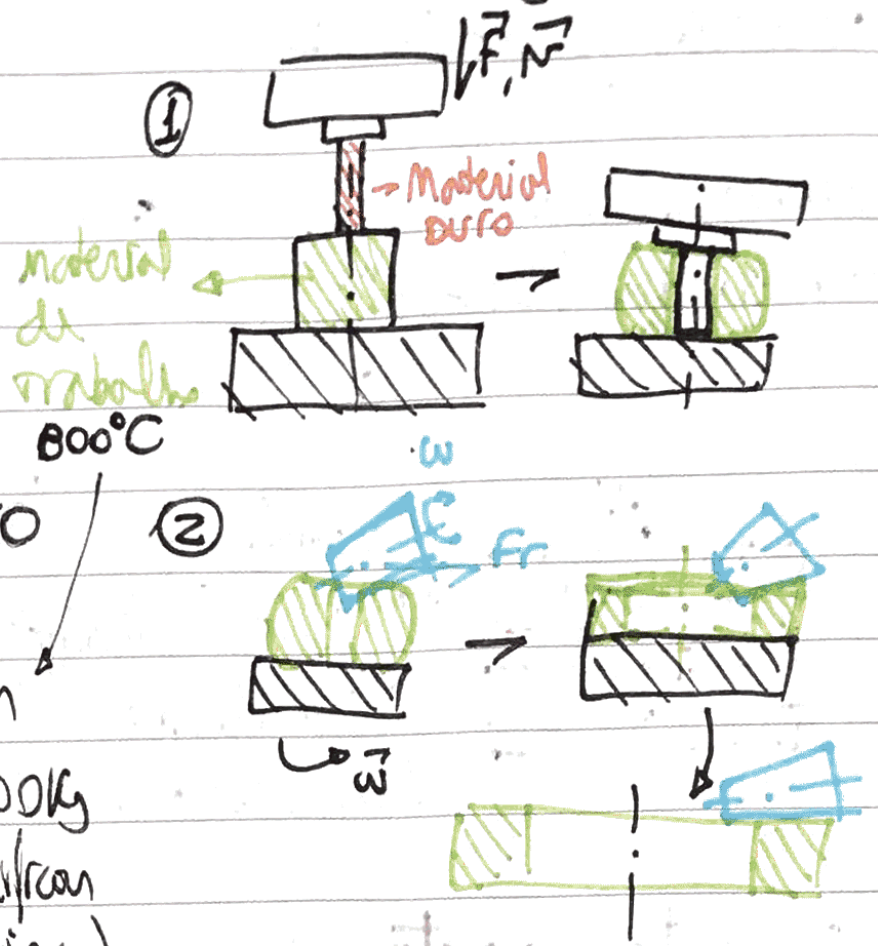 F, N
①
Material
Duro
Material
de
trabalho
800°C
ω
②
Fr
ω